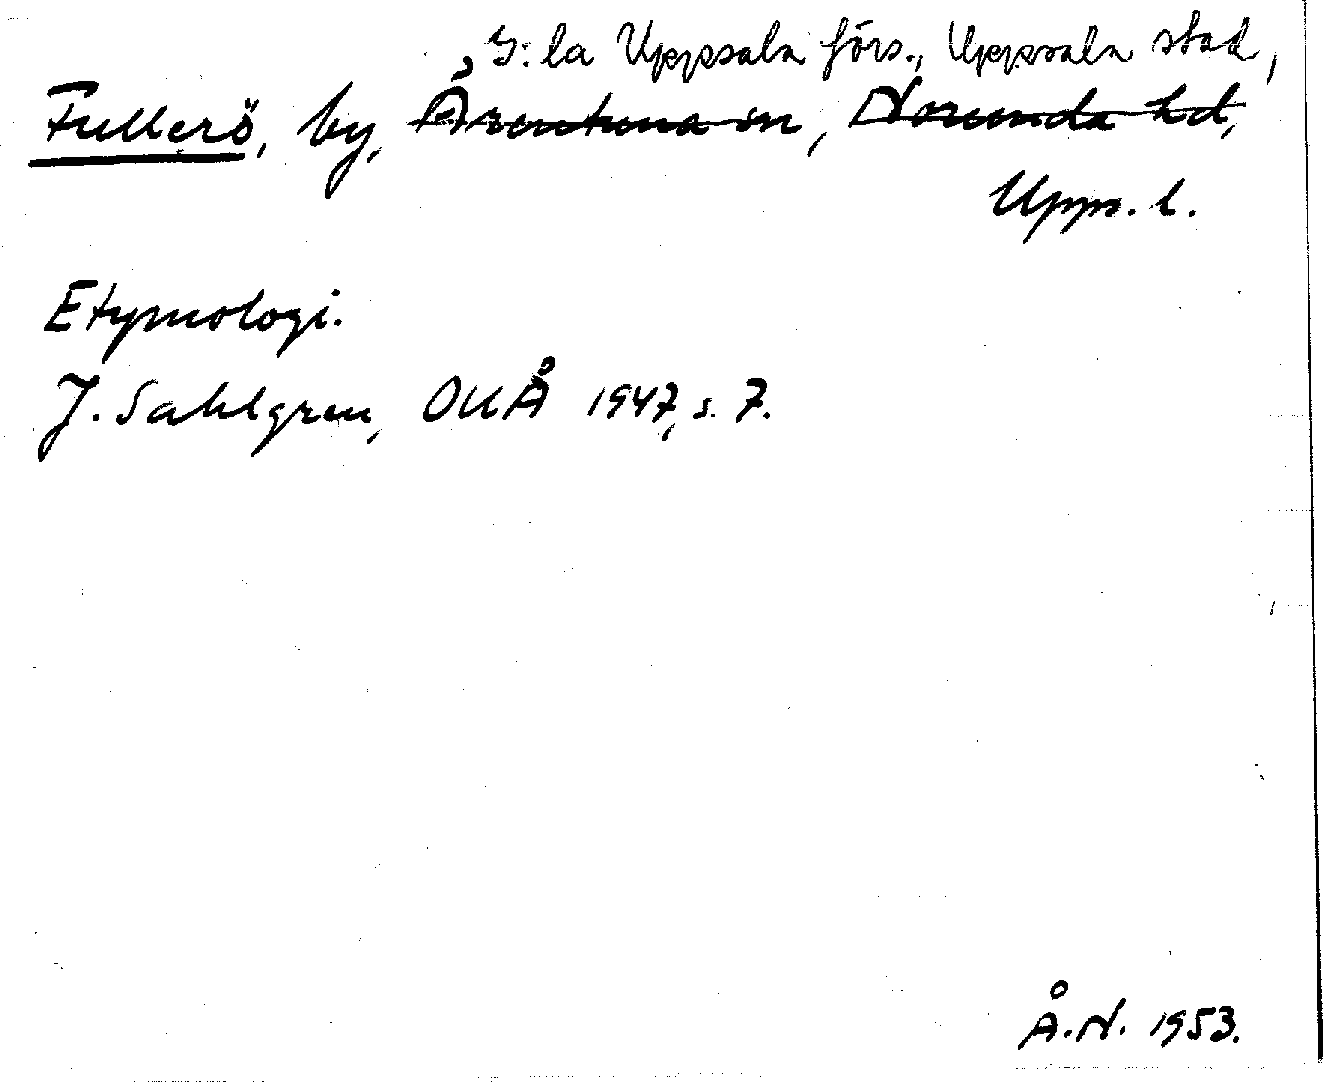 G:la Uppsala förs., Uppsala stad,
Fullerö, by, Ärentuna sn, Norunda hd,
Upps. l.
Etymologi.
J. Sahlgren, OUÅ 1947, s. 7.
Å.N. 1953.